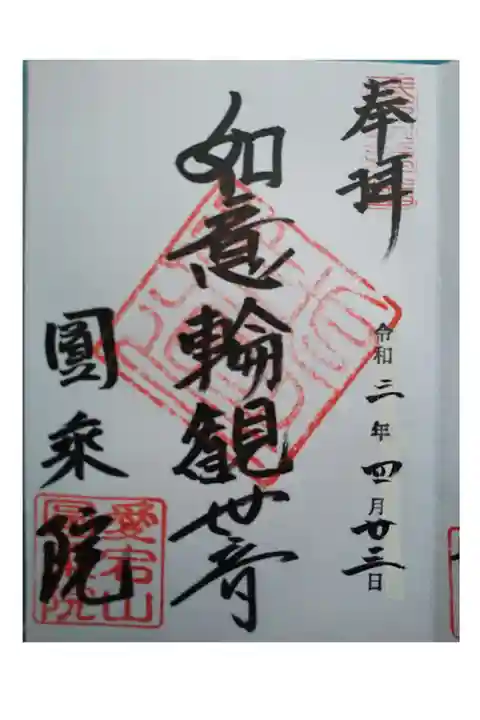 奉拝
令和三年四月廿三日
如意輪観世音
圓乘院
愛宕山
圓乗院